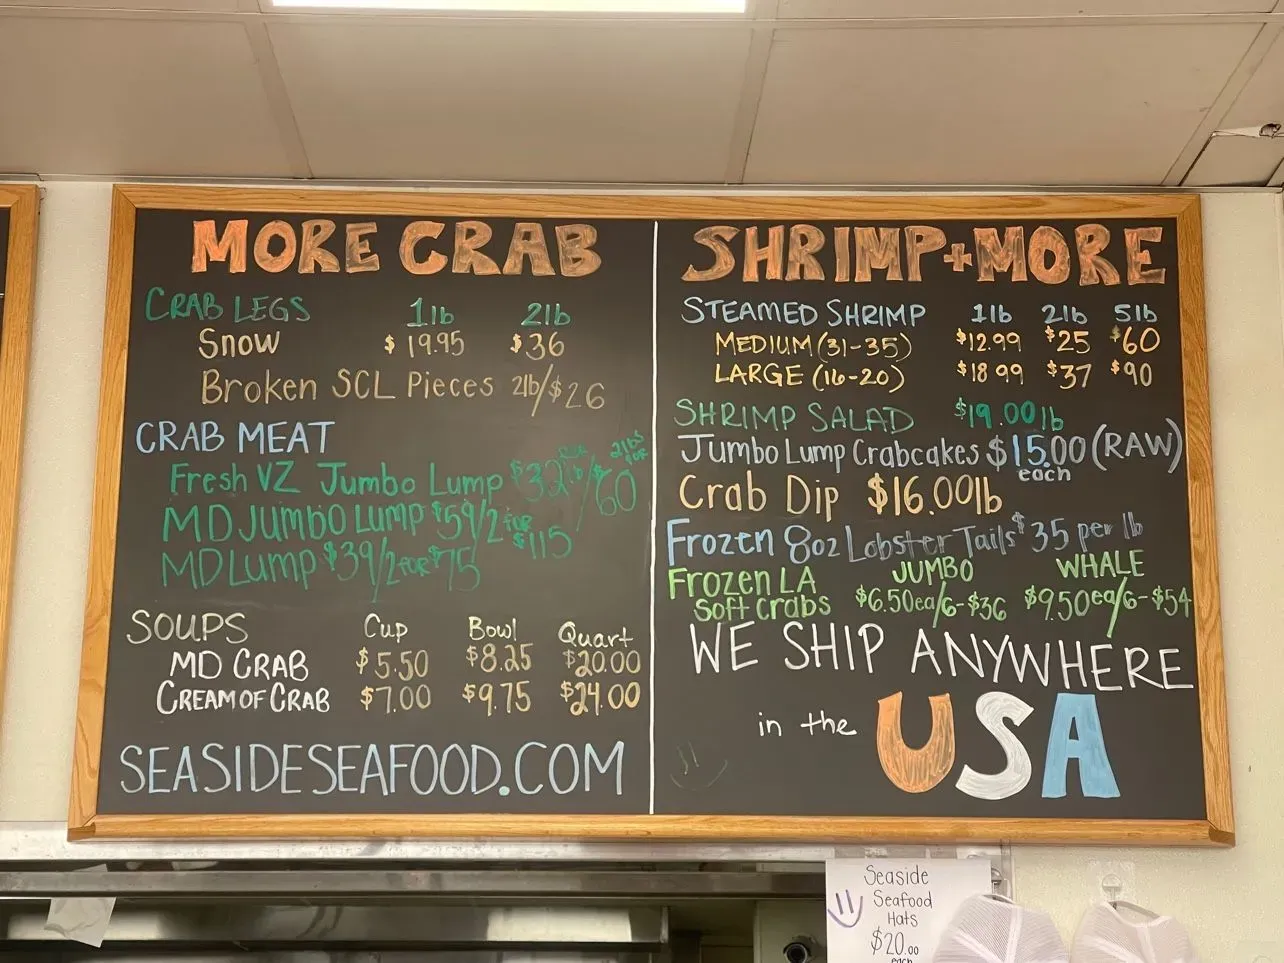 MORE CRAB
CRAB LEGS 1lb 2lb
Snow $19.95 $36
Broken SCL Pieces 2lb/$26
CRAB MEAT
Fresh VZ Jumbo Lump $32 lb/2lbs for $60
MD Jumbo Lump $59/2 for $115
MD Lump $39/2 for $75
SOUPS Cup Bowl Quart
MD CRAB $5.50 $8.25 $20.00
CREAM OF CRAB $7.00 $9.75 $24.00
SEASIDESEAFOOD.COM
SHRIMP + MORE
STEAMED SHRIMP 1lb 2lb 5lb
MEDIUM (31-35) $12.99 $25 $60
LARGE (16-20) $18.99 $37 $90
SHRIMP SALAD $19.00 lb
Jumbo Lump Crabcakes $15.00 (RAW)
each
Crab Dip $16.00 lb
Frozen 8oz Lobster Tails $35 per lb
Frozen LA JUMBO WHALE
Soft Crabs $6.50ea/6-$36 $9.50ea/6-$54
WE SHIP ANYWHERE
in the USA
Seaside
Seafood
Hats
$20.00
each